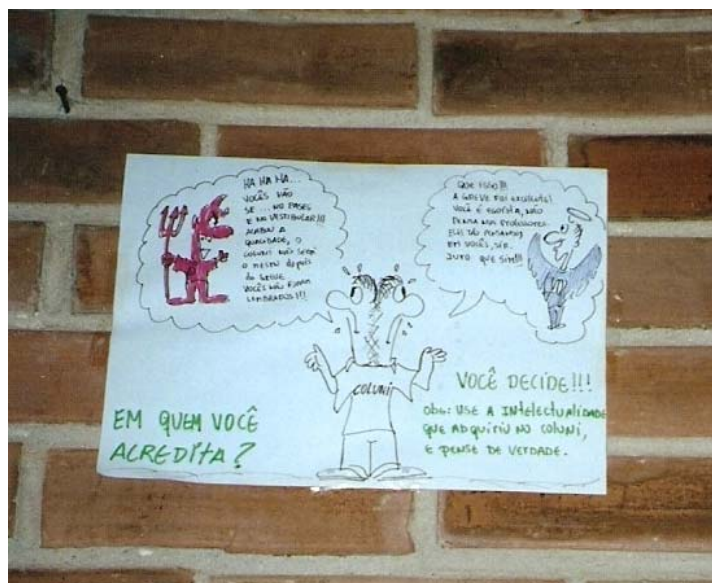 HA HA HA...
VOCÊS VÃO
SE ... NO PASES
E NO VESTIBULAR!!!
ACABOU A
QUALIDADE, O
COLUNI NÃO SERÁ
O MESMO depois
da GREVE
VOCÊS NÃO FORAM
LEMBRADOS!!!
QUE ISSO!!!
A GREVE FOI EXCELENTE!
VOCÊ É EGOÍSTA, NÃO
PENSA NOS PROFESSORES.
ELES SÓ PENSAM
EM VOCÊS, SIM.
JURO QUE SIM!!!
COLUNI
EM QUEM VOCÊ
ACREDITA?
VOCÊ DECIDE!!!
Obs: USE A INTELECTUALIDADE
QUE ADQUIRIU NO COLUNI,
E PENSE DE VERDADE.